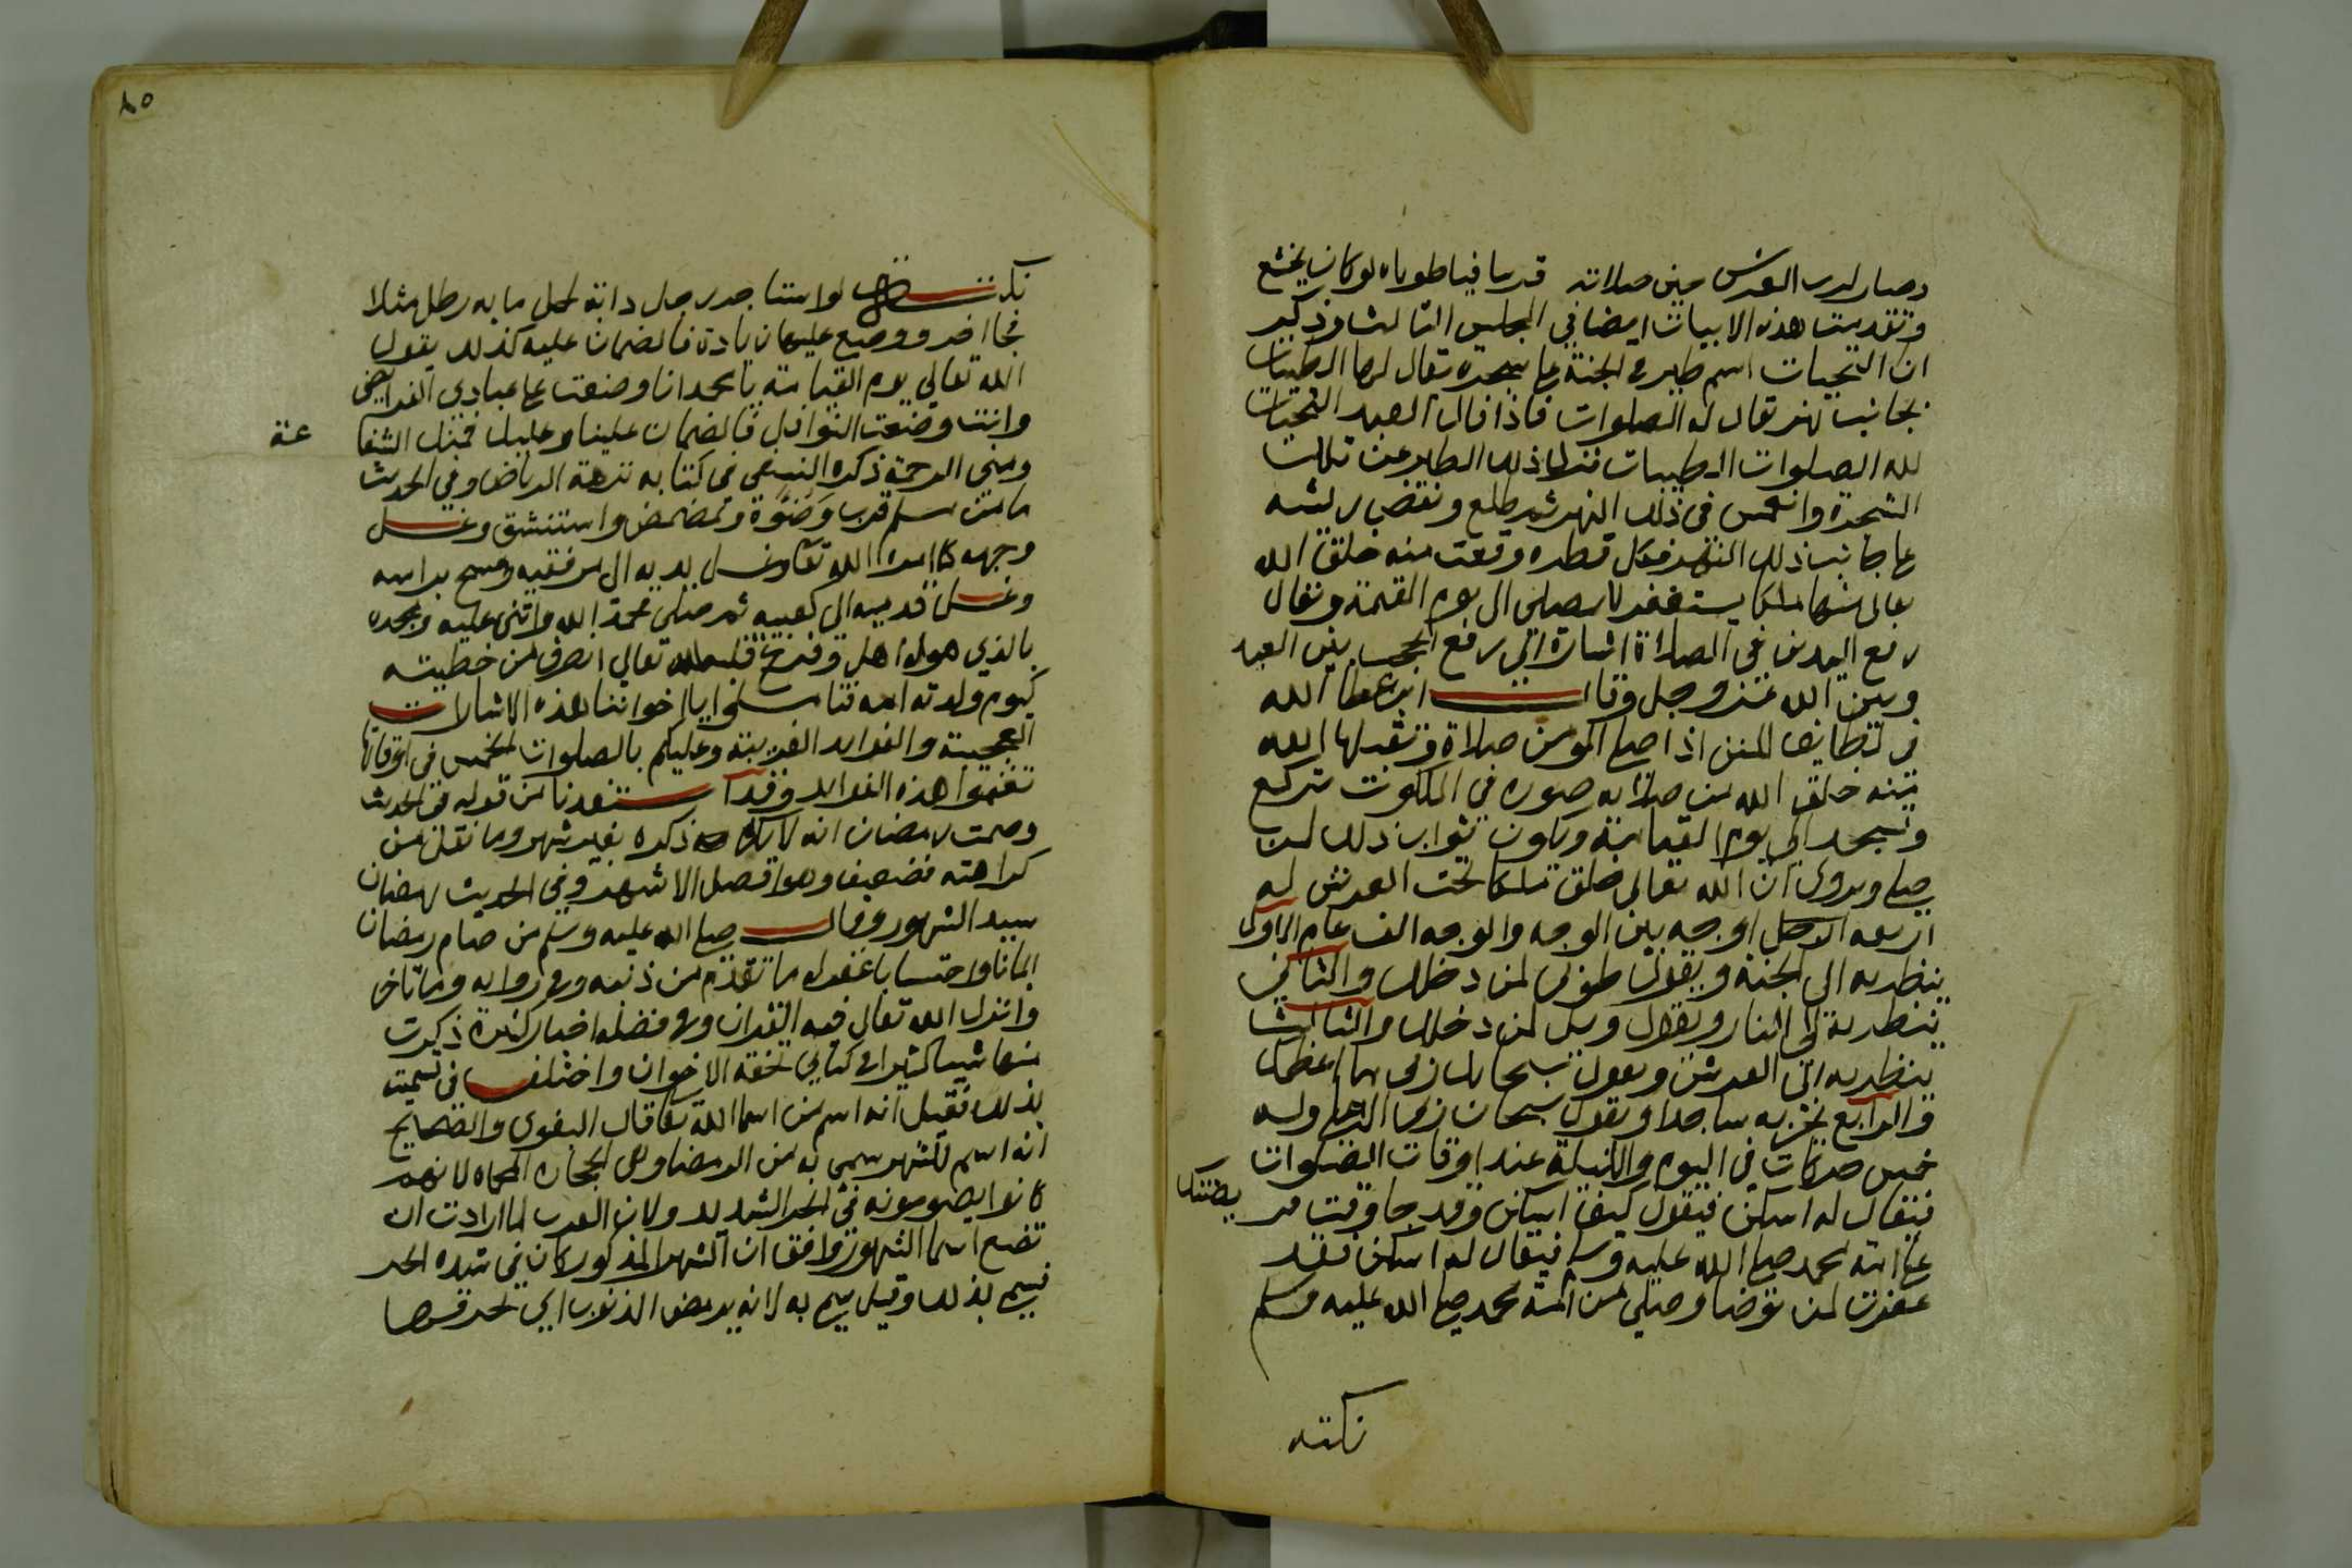 وصار لرب العرش حين صلاته قريبا فيا طوباه لو كان يخشع
وتقدمت هذه الابيات ايضا في المجلس الثالث وذكر
ان التحيات اسم طير في الجنة على شجرة يقال لها الطيبات
بجانب نهر يقال له الصلوات فاذا قال العبد التحيات
لله الصلوات الطيبات نزل ذلك الطير عن تلك
الشجرة وانغمس في ذلك النهر ثم طلع ونفض ريشه
على جانب ذلك النهر فكل قطره وقعت منه خلق الله
تعالى منها ملكا يستغفر للمصلي الى يوم القيمة ويقال
رفع اليدين في الصلاة اشارة الى رفع الحجب بين العبد
وبين الله عز وجل وقال ابن عطا الله
في لطايف المنن اذا صلى المومن صلاة وتقبلها الله
منه خلق الله من صلاته صوره في الملكوت تركع
وتسجد الى يوم القيامة ويكون ثواب ذلك لمن
صلى ويروى ان الله تعالى خلق ملكا تحت العرش له
اربعه اوجه بين الوجه والوجه الف عام الاول
ينظر به الى الجنة ويقول طوبى لمن دخلك والثاني
ينظر به الى النار ويقول ويل لمن دخلك والثالث
ينظر به الى العرش ويقول سبحانك ربي ما اعظمك
والرابع يخر به ساجدا ويقول سبحان ربي الاعلى وله
خمس حركات في اليوم والليلة عند اوقات الصلوات
فيقال له اسكن فيقول كيف اسكن وقد جا وقت فريضتك
على امة محمد صلى الله عليه وسلم فيقال له اسكن فقد
غفرت لمن توضا وصلى من امة محمد صلى الله عليه وسلم
نكته
٨٥
نكتة لو استاجر رجل دابة لحمل مايه رطل مثلا
فجا اخر ووضع عليها زيادة فالضمان عليه كذلك يقول
الله تعالى يوم القيامة يا محمد انا وضعت على عبادي الفرايض
وانت وضعت النوافل فالضمان علينا وعليك فمنك الشفاعة
ومني الرحمة ذكره النسفي في كتابه نزهة الرياض وفي الحديث
ما من مسلم قرب وضوءه وتمضمض واستنشق وغسل
وجهه كما امره الله تعا وغسل يديه الى مرفقيه ومسح براسه
وغسل قدميه الى كعبيه ثم صلى فحمد الله واثنى عليه ومجده
بالذي هو له اهل وفرغ قلبه لله تعالى انصرف من خطيئته
كيوم ولدته امه فتاملوا يا اخواننا هذه الاشارات
العجيبة والفوايد الغريبة وعليكم بالصلوات الخمس في اوقاتها
تغنموا هذه الفوايد وقد استفدنا من قوله في الحديث
وصمت رمضان انه لا يكره ذكره بغير شهر وما نقل من
كراهته فضعيف وهو افضل الاشهر وفي الحديث رمضان
سيد الشهور وقال صلى الله عليه وسلم من صام رمضان
ايمانا واحتسابا غفر له ما تقدم من ذنبه وفي روايه وما تاخر
وانزل الله تعالى فيه القران وفي فضله اخبار كثيرة ذكرت
منها شيا كثيرا في كتابي تحفة الاخوان واختلف في تسميته
بذلك فقيل انه اسم من اسما الله تعا قال البغوي والصحيح
انه اسم للشهر سمي به من الرمضا وهي الحجاره المحماه لانهم
كانوا يصومونه في الحر الشديد ولان العرب لما ارادت ان
تضع اسما الشهور وافق ان الشهر المذكور كان في شده الحر
فسمي بذلك وقيل سمي به لانه يرمض الذنوب اي يحرقها